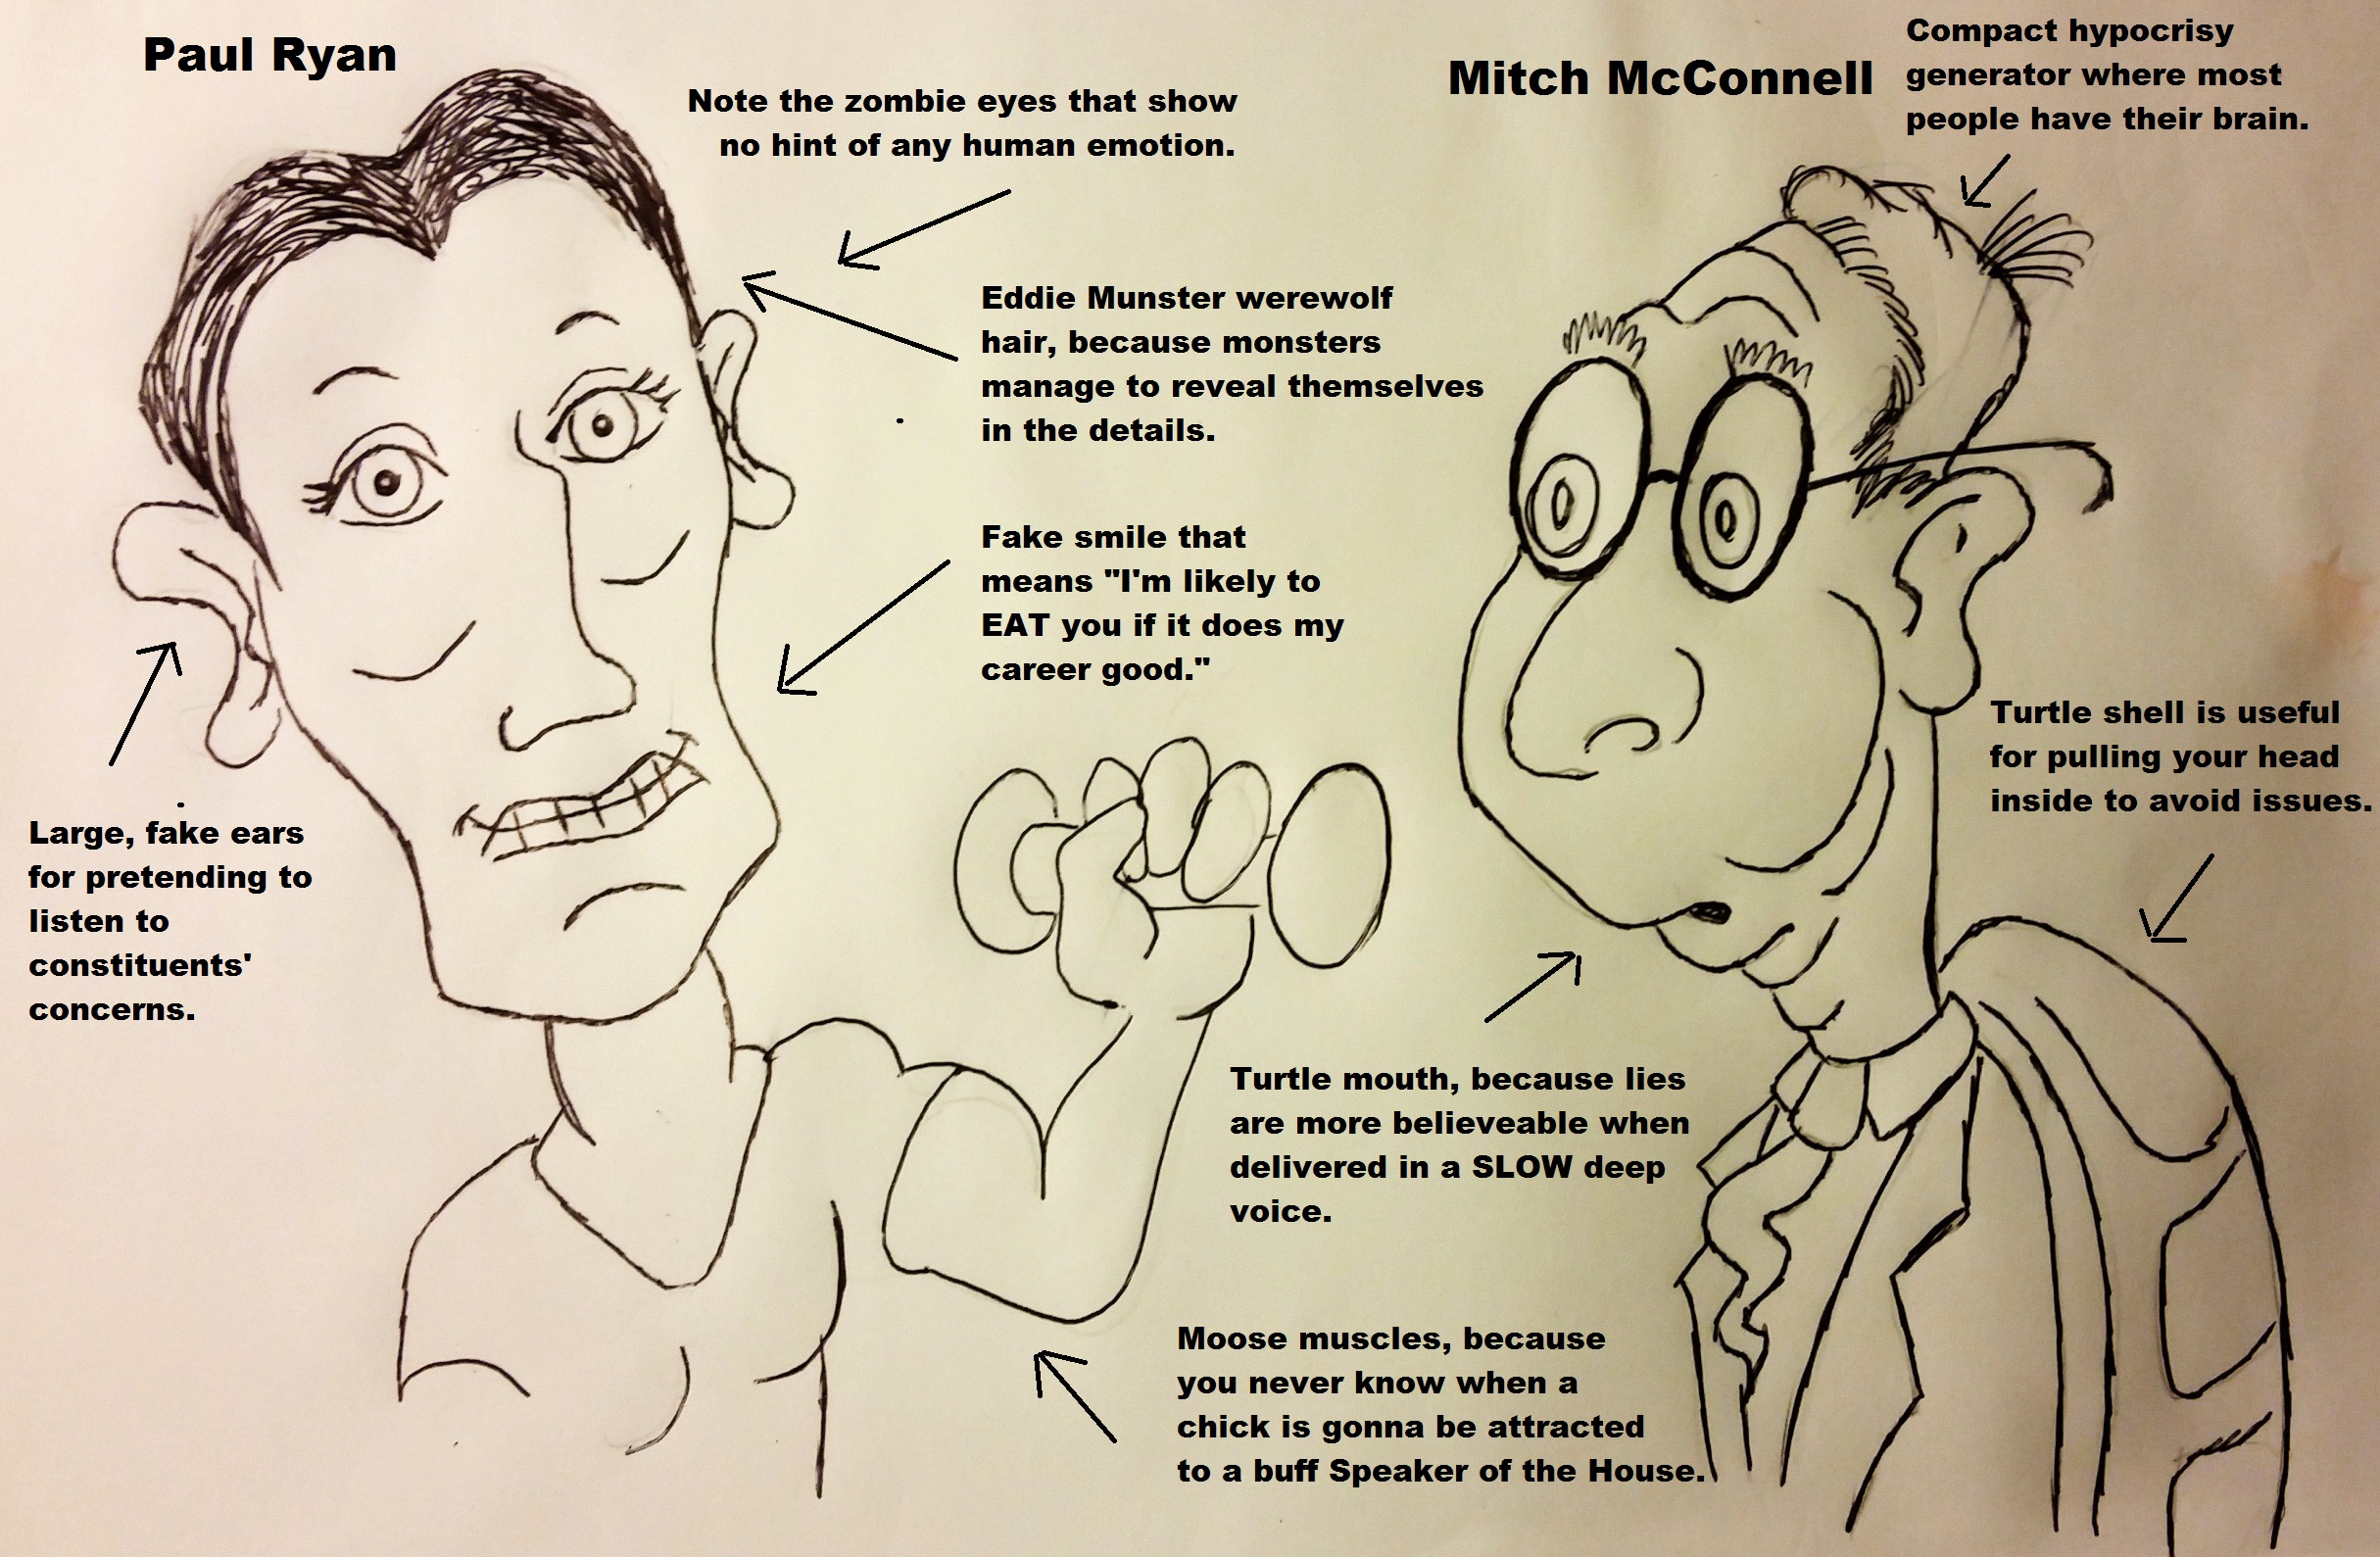 Paul Ryan
Note the zombie eyes that show
no hint of any human emotion.
Eddie Munster werewolf
hair, because monsters
manage to reveal themselves
in the details.
Fake smile that
means "I'm likely to
EAT you if it does my
career good."
Large, fake ears
for pretending to
listen to
constituents'
concerns.
Moose muscles, because
you never know when a
chick is gonna be attracted
to a buff Speaker of the House.
Mitch McConnell
Compact hypocrisy
generator where most
people have their brain.
Turtle shell is useful
for pulling your head
inside to avoid issues.
Turtle mouth, because lies
are more believeable when
delivered in a SLOW deep
voice.